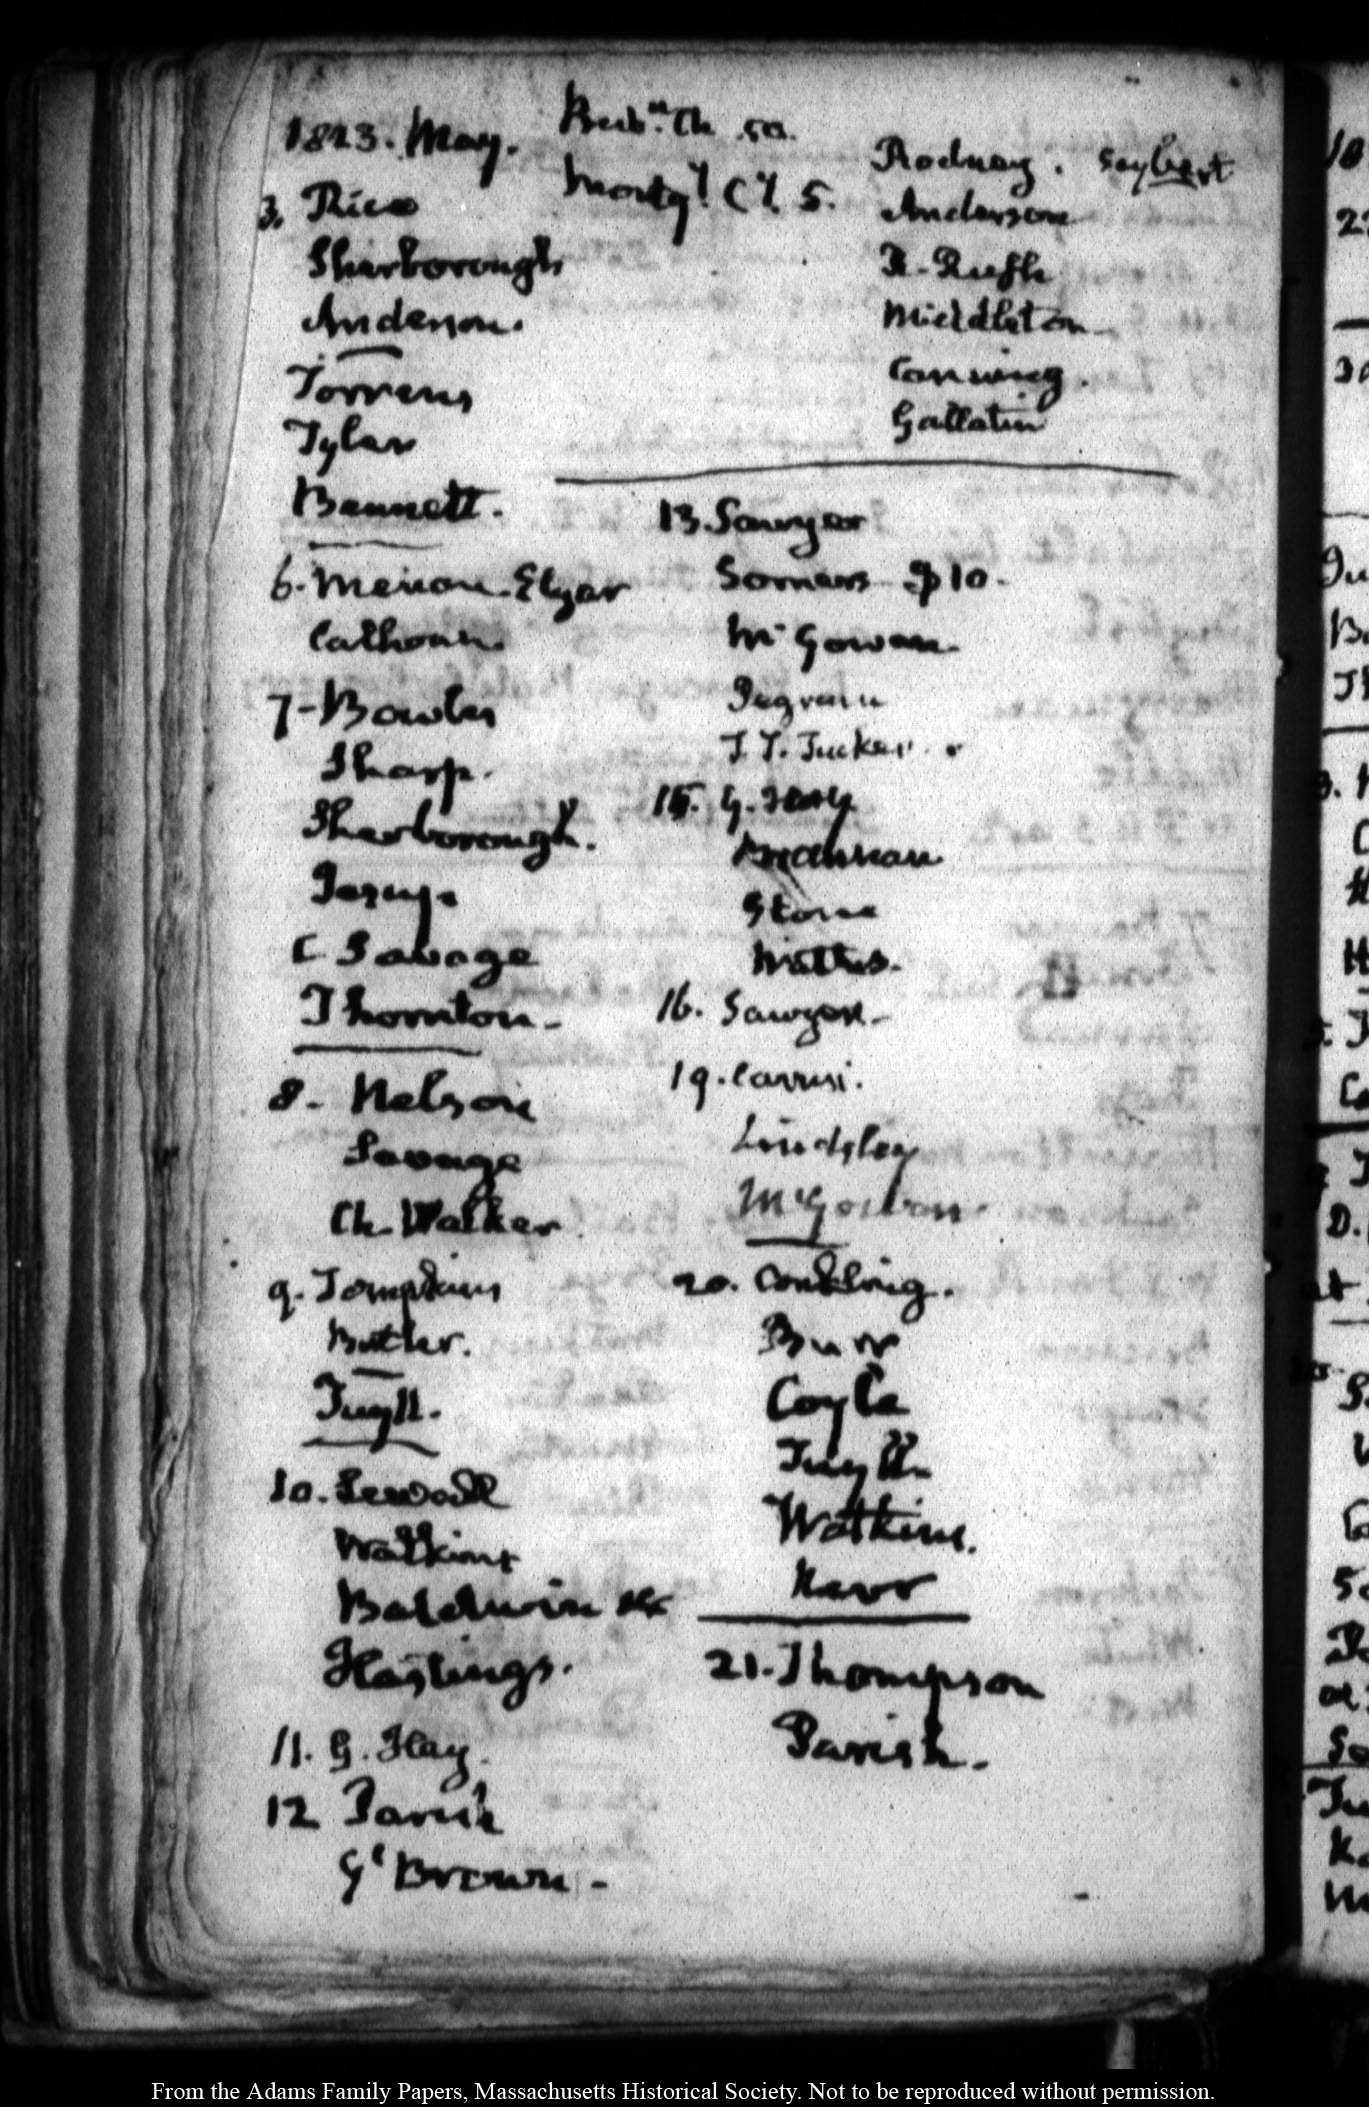 1823. May.
3. Rice
Sherborough
Anderson.
Torrens
Tyler
Bennett.
6. Merion. Elgar
Calhoun.
7- Bowles
Sharp.
Sherborough.
Jesup.
C Savage
Thornton-
8- Nelson
Savage
Ch. Walker
9. Tompkins
Butler.
Tuyll.
10. Sewall
Watkins
Baldwin
Hastings.
11. G. Hay.
12 Parish
Gl Brown-
50.
Montgy. 5.
Rodney. Seybert
Anderson
R. Rush
Middleton
Canning.
Gallatin
13. Sawyer
Somers $10-
McGowan.
Pegram
T. T. Tucker.
15. G. Hay
Brannan
Stone
16. Sawyer-
19. Carusi.
Lindsley
McGowan.
20. Conkling.
Burr
Coyle
Tuyll.
Watkins.
Kerr
21. Thompson
Parish.
From the Adams Family Papers, Massachusetts Historical Society. Not to be reproduced without permission.